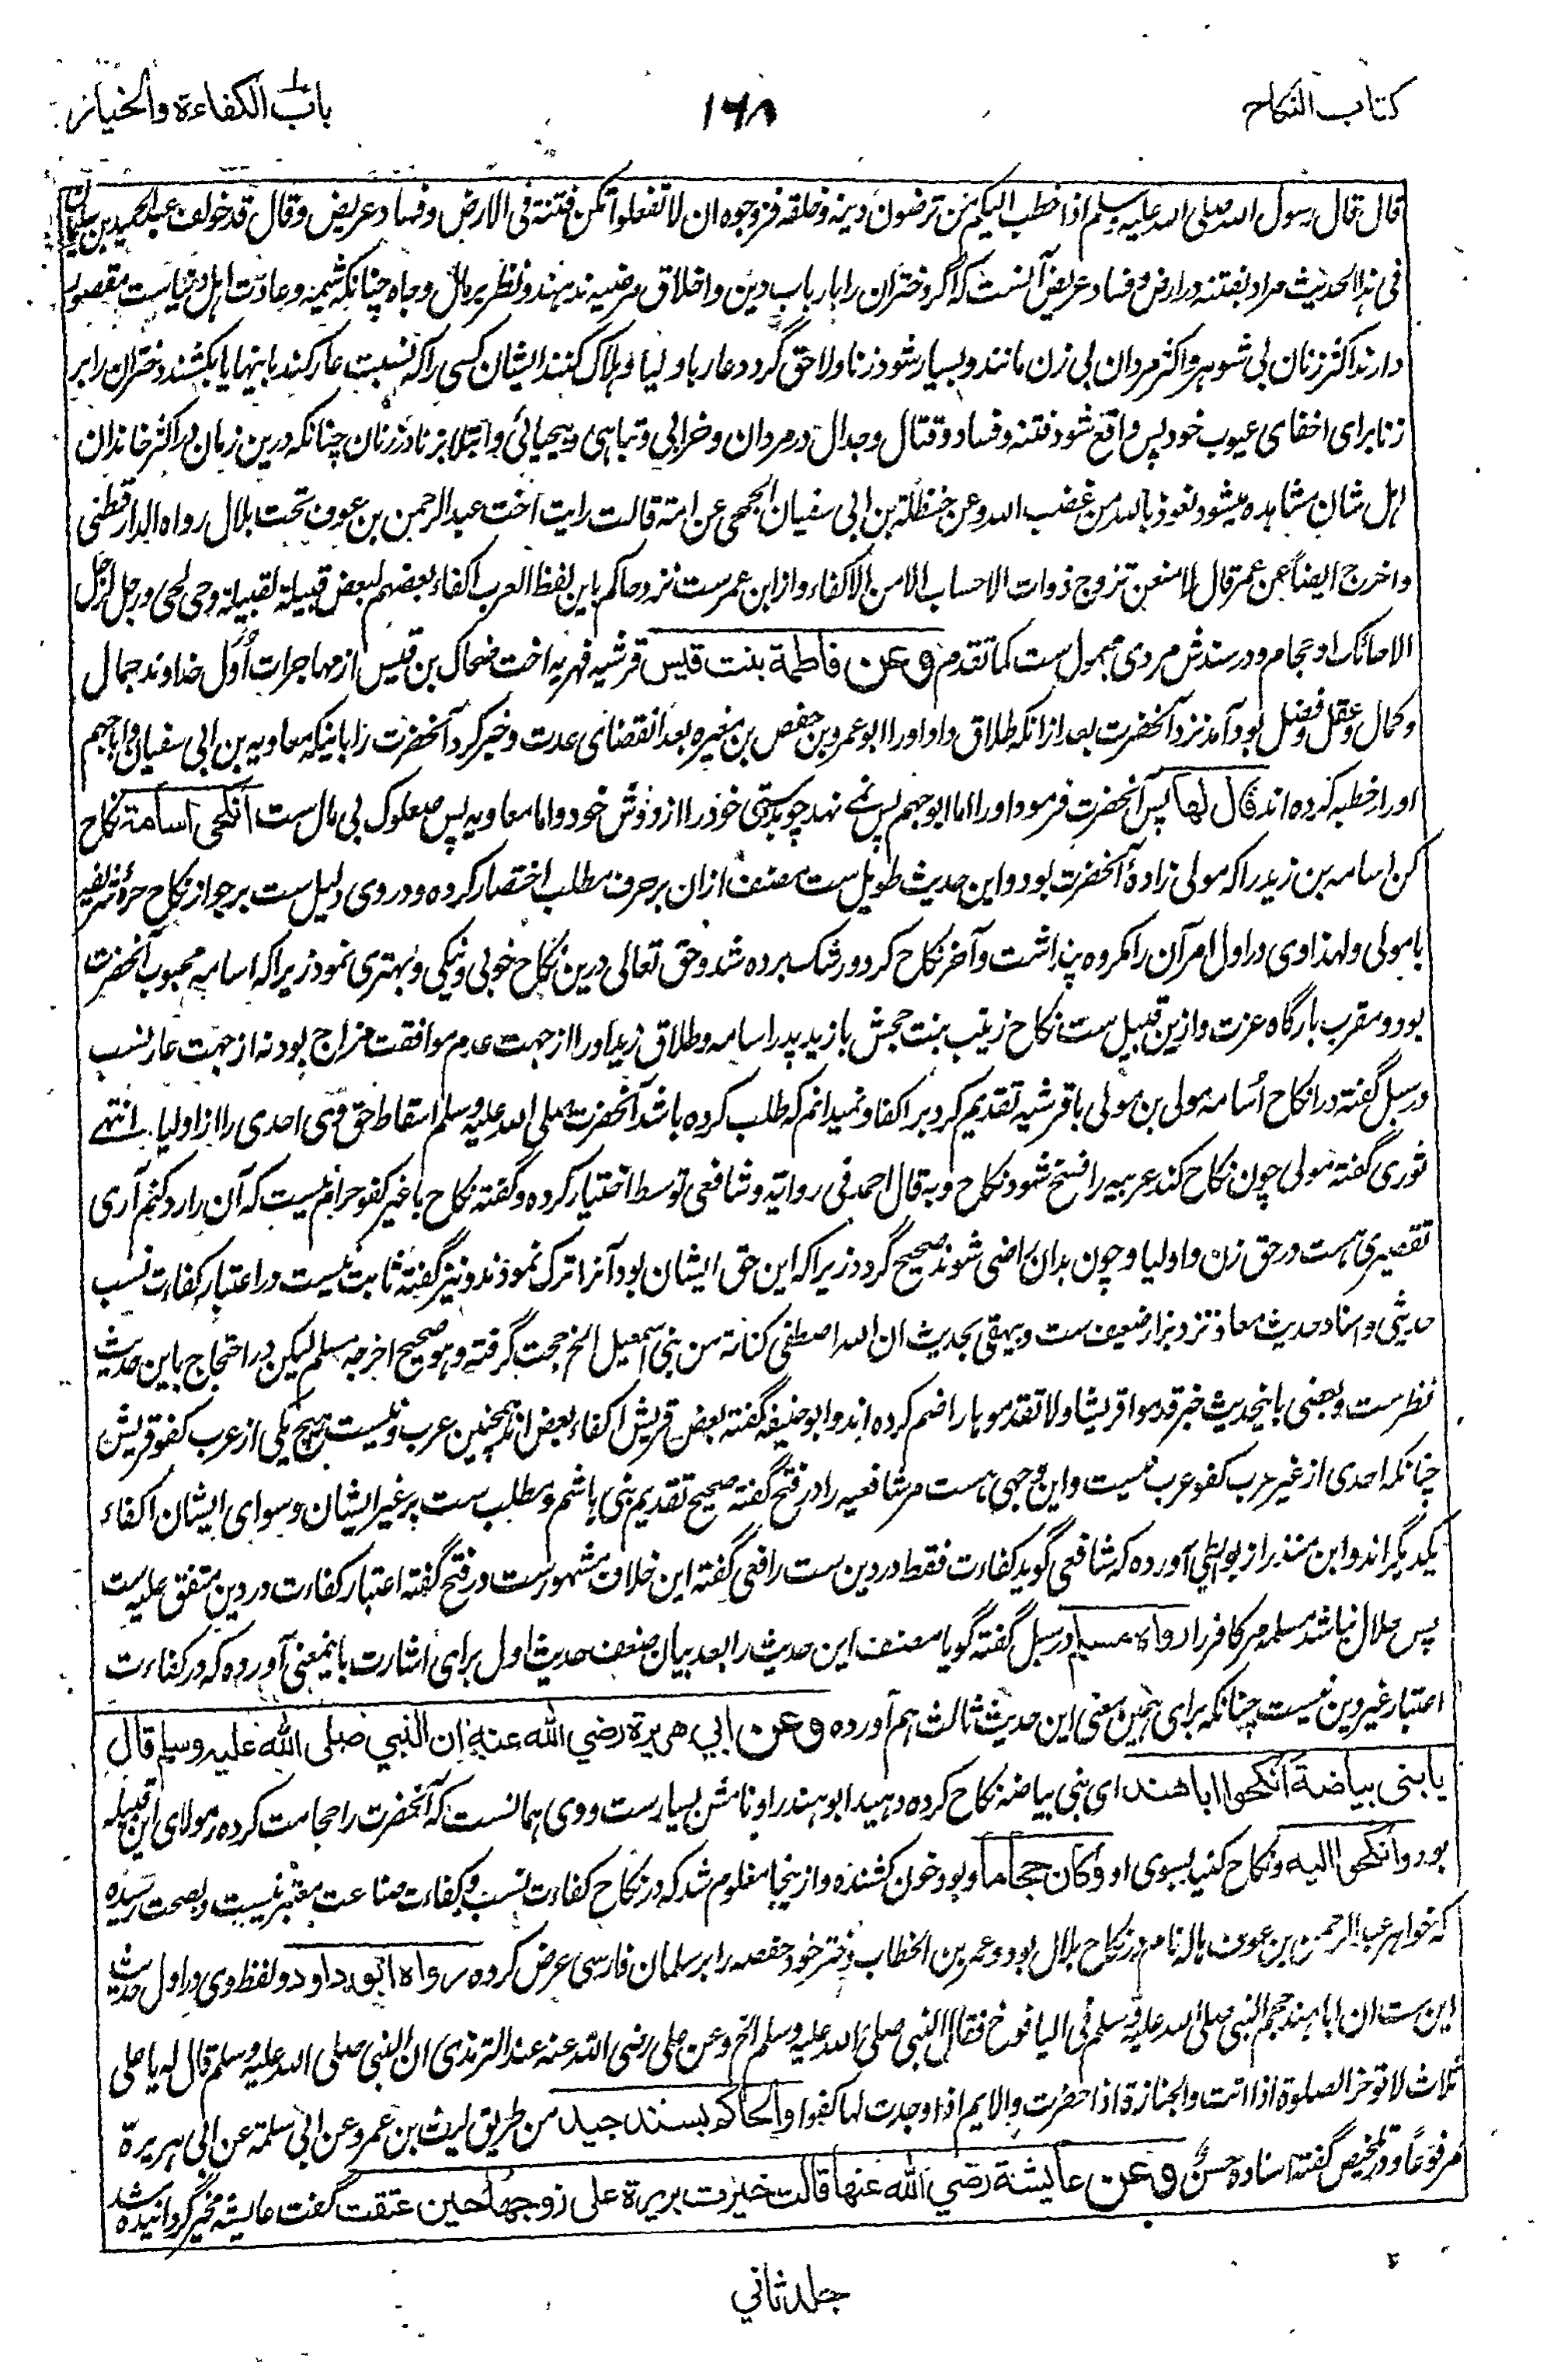 كتاب النكاح
١٦٨
باب الكفاءة والخيار
قال قال رسول الله صلى الله عليه وسلم اذا خطب اليكم من ترضون دينه وخلقه فزوجوه ان لا تفعلوا تكن فتنة فى الارض وفساد عريض وقال قد خولف عبد الحميد بن سليمان
فى هذا الحديث مراد بفتنه در ارض و فساد عريض آنست كه اگر دختران را با رباب دين و اخلاق مرضيه ندهند و نظر بر مال و جاه چنانكه شيمه و عادت اهل دنياست مقصور
دارند اكثر زنان بى شوهر و اكثر مردان بى زن مانند و بسيار شود زنا و لاحق گردد عار با وليا و هلاك كنند ايشان كسى را كه نسبت عار كند باينها يا بكشند دختران را بر
زنا براى اخفاى عيوب خود پس واقع شود فتنه و فساد و قتال و جدال در مردان و خرابى و تباهى و بيحيائى و ابتلا بزنا در زنان چنانكه درين زمان در اكثر خاندان
اهل شان مشاهده ميشود نعوذ بالله من غضب الله وعن حنظلة بن ابى سفيان الجمحى عن امه قالت رايت اخت عبد الرحمن بن عوف تحت بلال رواه الدارقطنى
واخرج ايضاً عن عمر قال لامنعن تزوج ذوات الاحساب الا من الاكفاء و از ابن عمرست نزد حاكم باين لفظ العرب اكفاء بعضهم لبعض قبيلة لقبيلة وحى لحى ورجل لرجل
الا حائك او حجام و در سندش مردى مجهول ست كما تقدم وعن فاطمة بنت قيس قرشيه فهريه اخت ضحاك بن قيس از مهاجرات اُوَل خداوند جمال
و كمال و عقل و فضل بود آمد نزد آنحضرت بعد از انكه طلاق داد او را ابو عمرو بن حفص بن مغيره بعد انقضاى عدت و خبر كرد آنحضرت را بانيكه معاويه بن ابى سفيان و ابا جهم
او را خطبه كرده اند قال لها پس آنحضرت فرمود او را اما ابو جهم پس نمے نهد چوبدستى خود را از دوش خود و اما معاويه پس صعلوك بى مال ست انكحى اسامة نكاح
كن اسامه بن زيد را كه مولى زادهٔ آنحضرت بود و اين حديث طويل ست مصنف ازان بر حرف مطلب اختصار كرده و در وى دليل ست بر جواز نكاح حرهٔ شريفه
با مولى و لهذا وى در اول امر آن را مكروه پنداشت و آخر نكاح كرد و رشك برده شد و حق تعالى درين نكاح خوبى و نيكى و بهترى نمود زيراكه اسامه محبوب آنحضرت
بود و مقرب بارگاه عزت و ازين قبيل ست نكاح زينب بنت جحش با زيد پدر اسامه و طلاق زيد او را از جهت عدم موافقت مزاج بود نه از جهت عار نسب
در سبل گفته در انكاح اُسامه مولى بن مولى با قرشيه تقديم كرد بر اكفا و نميدانم كه طلب كرده باشد آنحضرت صلى الله عليه وسلم اسقاط حق وى احدى را از اوليا انتهے
ثورى گفته مولى چون نكاح كند عربيه را فسخ شود نكاح و به قال احمد فى رواية و شافعى توسط اختيار كرده و گفته نكاح با غير كفو حرام نيست كه آن را رد كنم آرى
تقصيرى هست در حق زن و اوليا و چون بدان راضى شوند صحيح گردد زيراكه اين حق ايشان بود آنرا ترك نمودند و نيز گفته ثابت نيست در اعتبار كفاءت نسب
حديثى و اسناد حديث معاذ نزد بزار ضعيف ست و بيهقى بحديث ان الله اصطفى كنانة من بنى اسمعيل الخ حجت گرفته و هو صحيح اخرجه مسلم ليكن در احتجاج باين حديث
نظرست و بعضى باينحديث خبر قدموا قريشا ولا تقدموها را ضم كرده اند و ابو حنيفه گفته بعض قريش اكفاء بعض اند همچنين عرب و نيست هيچ يكى از عرب كفو قريش
چنانكه احدى از غير عرب كفو عرب نيست و اين وجهى هست مر شافعيه را در فتح گفته صحيح تقديم بنى هاشم و مطلب ست بر غير ايشان و سواى ايشان اكفاء
يكديگر اند و ابن منذر از بويطى آورده كه شافعى گويد كفاءت فقط در دين ست رافعى گفته اين خلاف مشهورست در فتح گفته اعتبار كفاءت در دين متفق عليه ست
پس حلال نباشد مسلمه مر كافر را رواه مسلم در سبل گفته گويا مصنف اين حديث را بعد بيان ضعف حديث اول براى اشارت باينمعنى آورده كه در كفاءت
اعتبار غير دين نيست چنانكه براى همين معنى اين حديث ثالث هم آورده وعن ابي هريرة رضي الله عنه ان النبي صلى الله عليه وسلم قال
يا بنى بياضة انكحوا ابا هند اى بنى بياضه نكاح كرده دهيد ابو هند را و نامش يسارست و وى همانست كه آنحضرت را حجامت كرده مولاى اين قبيله
بود وانكحوا اليه و نكاح كنيد بسوى او وكان حجاما و بود خون كشنده و ازينجا معلوم شد كه در نكاح كفاءت نسب و كفاءت صناعت معتبر نيست و بصحت رسيده
كه خواهر عبد الرحمن بن عوف هاله نام در نكاح بلال بود و عمر بن الخطاب دختر خود حفصه را بر سلمان فارسى عرض كرده رواه ابو داود و لفظ وى در اول حديث
اين ست ان ابا هند حجم النبى صلى الله عليه وسلم فى اليافوخ فقال النبى صلى الله عليه وسلم الخ وعن على رضى الله عنه عند الترمذى ان النبى صلى الله عليه وسلم قال له يا على
ثلاث لا توخر الصلوة اذا اتت والجنازة اذا حضرت والايم اذا وجدت لها كفوا والحاكم بسند جيد من طريق ليث بن عمرو عن ابى سلمة عن ابى هريرة
مرفوعاً و در تلخيص گفته اسناده حسنٌ وعن عايشة رضي الله عنها قالت خيرت بريرة على زوجها حين عتقت گفت عايشه مخير گردانيده شد
جلد ثاني